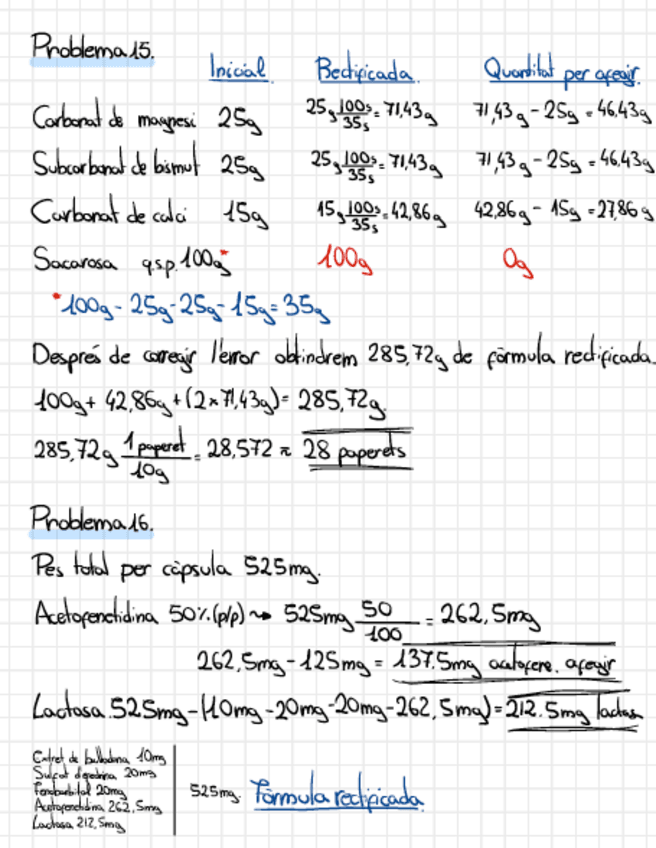 Problema 15.
Inicial Rectificada Quantitat per afegir.
Carbonat de magnesi 25g 25g 100g/35g = 71,43g 71,43g - 25g = 46,43g
Subcarbonat de bismut 25g 25g 100g/35g = 71,43g 71,43g - 25g = 46,43g
Carbonat de calci 15g 15g 100g/35g = 42,86g 42,86g - 15g = 27,86g
Sacarosa q.s.p. 100g* 100g 0g
*100g - 25g - 25g - 15g = 35g
Després de corregir l'error obtindrem 285,72g de fórmula rectificada.
100g + 42,86g + (2 × 71,43g) = 285,72g.
285,72g 1 paperet/10g = 28,572 ≈ 28 paperets
Problema 16.
Pes total per càpsula 525mg.
Acetofenetidina 50%(p/p) ~> 525mg 50/100 = 262,5mg
262,5mg - 125mg = 137.5mg acetofene. afegir
Lactosa. 525mg - (10mg - 20mg - 20mg - 262,5mg) = 212.5mg lactosa
Extret de belladona 10mg
Sulfat d'efedrina 20mg
Fenobarbital 20mg
Acetofenetidina 262,5mg
Lactosa 212,5mg
525mg. Fórmula rectificada